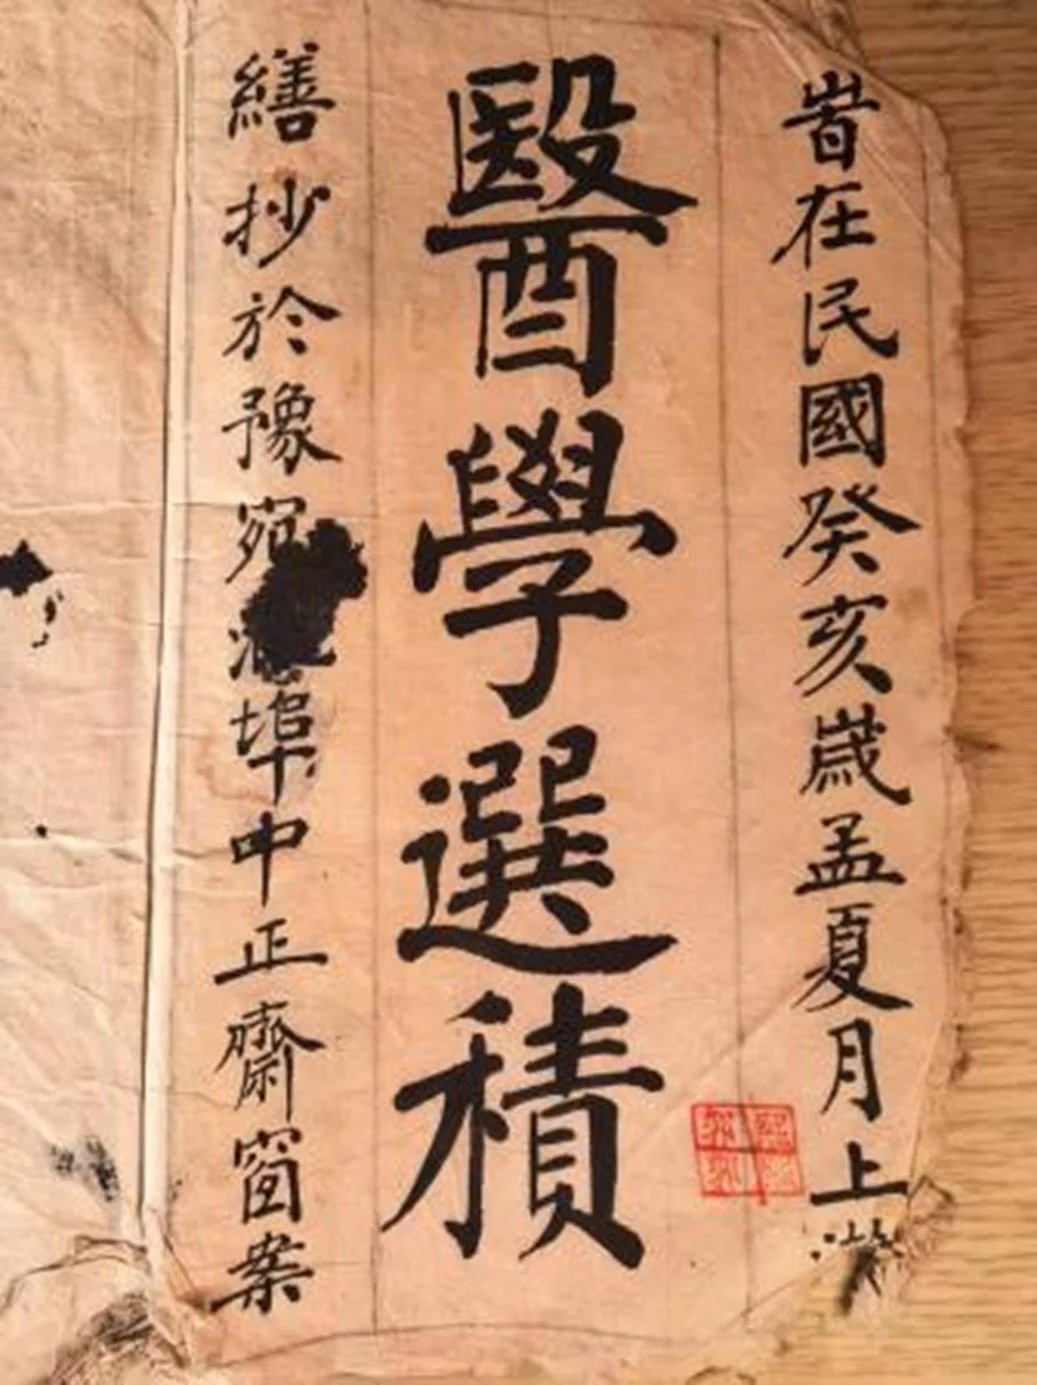 峕在民國癸亥歲孟夏月上
醫學選積
繕抄於豫宛埠中正齋窗案